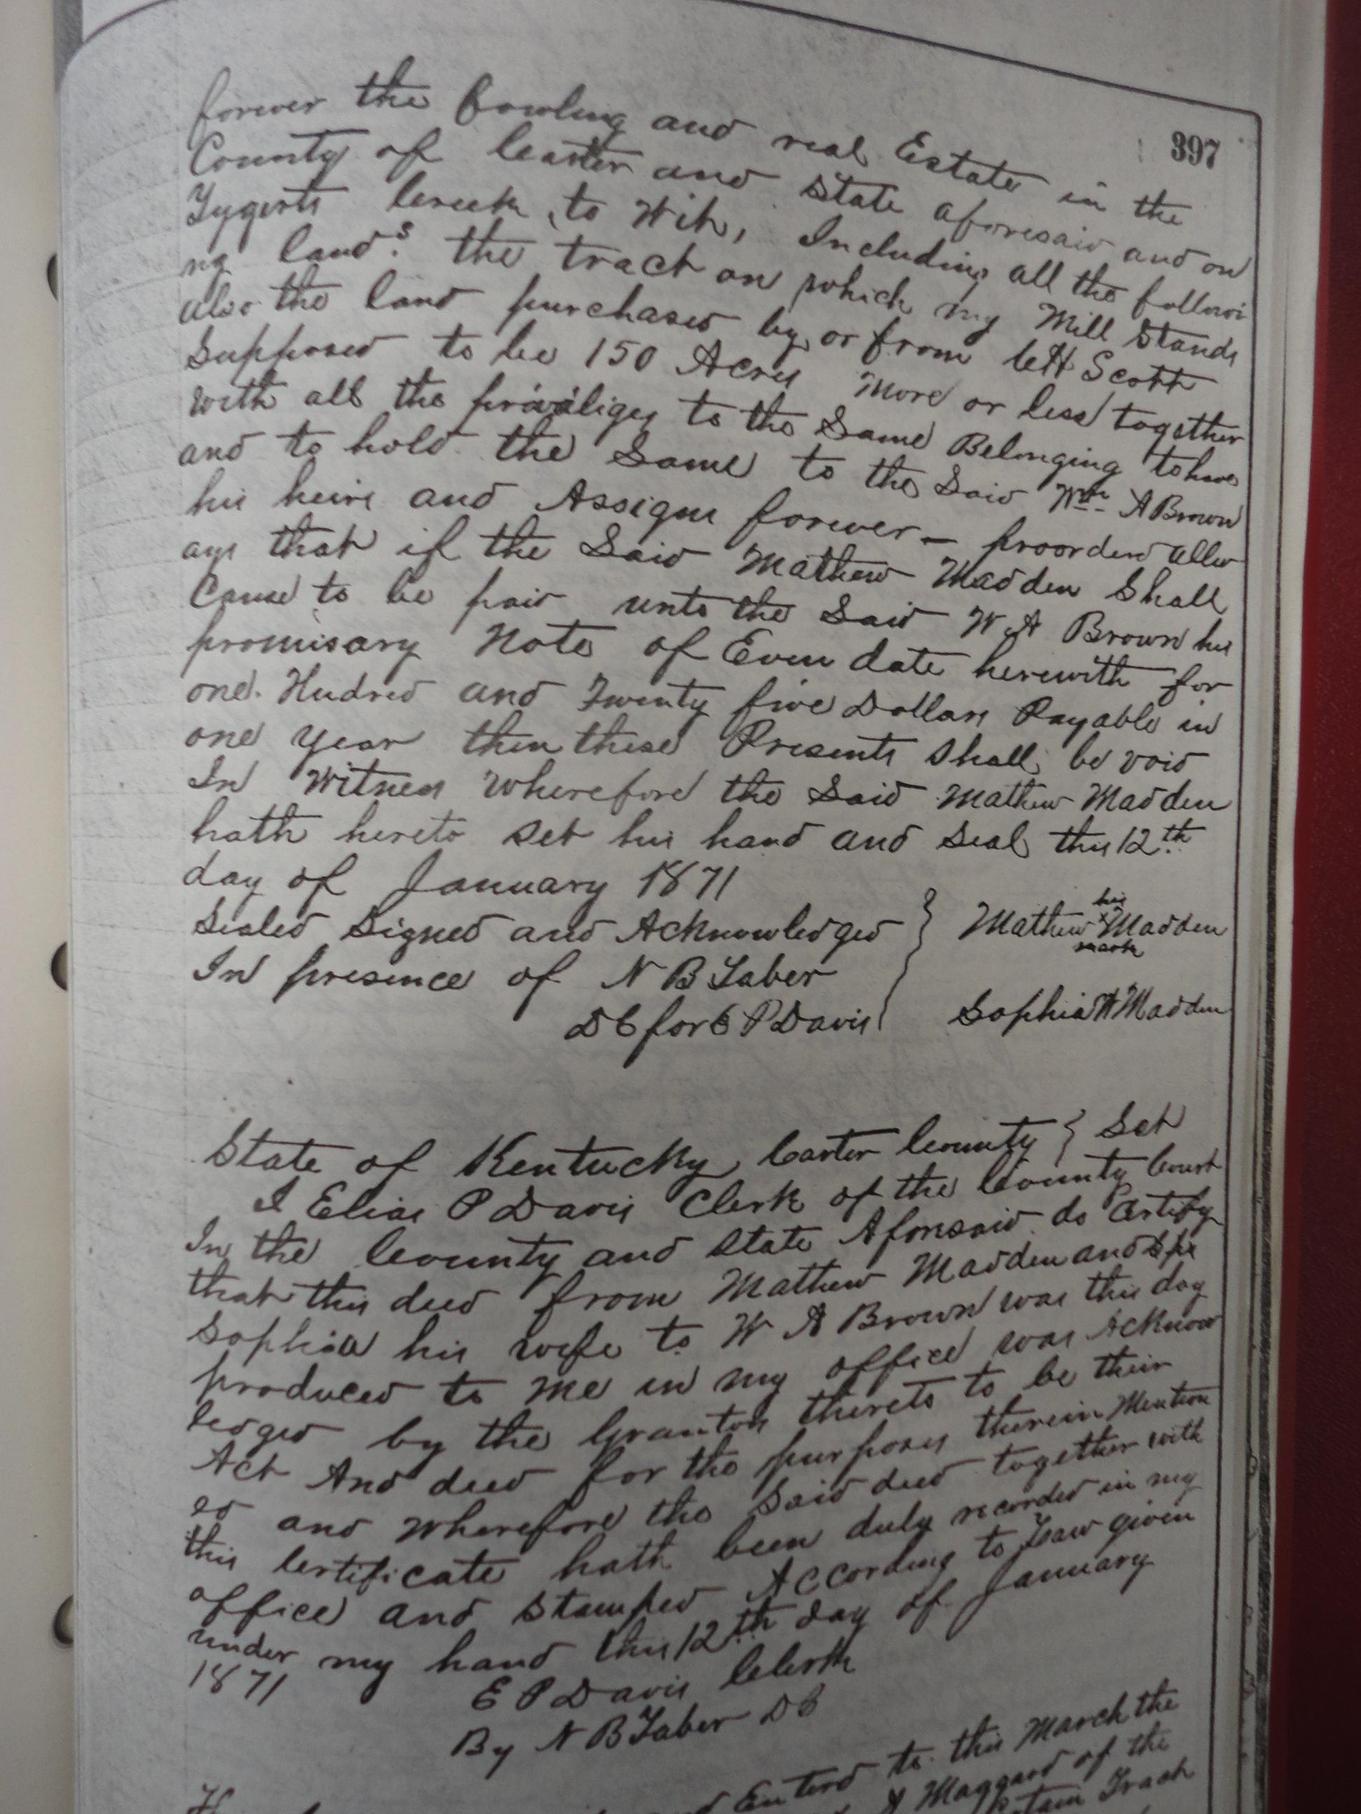 397
forever the fowling and real Estate in the
County of Carter and State aforesaid and on
Tygerts Creek to Wit, Including all the followi
ng lands. the tract on which my Mill Stands
also the land purchased by or from C H Scott
Supposed to be 150 Acres More or less together
with all the privaliges to the Same Belonging to have
and to hold the Same to the Said Wm A Brown
his heirs and Assigns forever - allw
ays that if the Said Mathew Madden Shall
Cause to be paid unto the Said W A Brown his
promisary Note of Even date herewith for
one Hudred and Twenty five Dollars Payable in
one year then these Presents Shall be void
In Witness Wherefore the Said Mathew Madden
hath hereto Set his hand and Seal this 12th
day of January 1871
Sealed Signed and Acknowledged } Mathew his x mark Madden
In presence of N B Taber
D C for E P Davis } Sophia Madden
State of Kentucky Carter County } Set
I Elias P Davis Clerk of the County Court
In the County and State Aforesaid do Certify
that this deed from Mathew Madden and
Sophia his wife to W A Brown was this day
produced to Me in my office was Acknow
ledged by the Grantors thereto to be their
Act And deed for the purposes therein Mention
ed and Wherefore the Said deed together with
this Certificate hath been duly recorded in my
office and Stamped According to Law given
under my hand this 12th day of January
1871 E P Davis Clerk
By N B Taber D C
Enterd to this March the
Maggard of the
Track